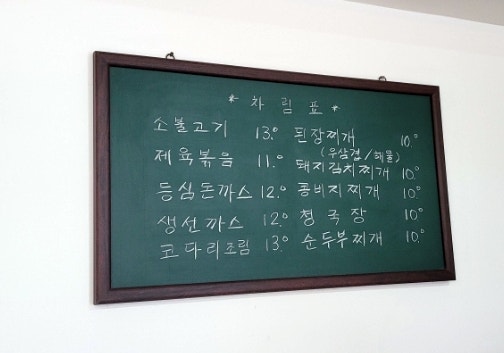 * 차 림 표 *
소불고기 13.0 된장찌개 10.0
(우삼겹/해물)
제육볶음 11.0 돼지김치찌개 10.0
등심돈까스 12.0 콩비지찌개 10.0
생선까스 12.0 청국장 10.0
코다리조림 13.0 순두부찌개 10.0